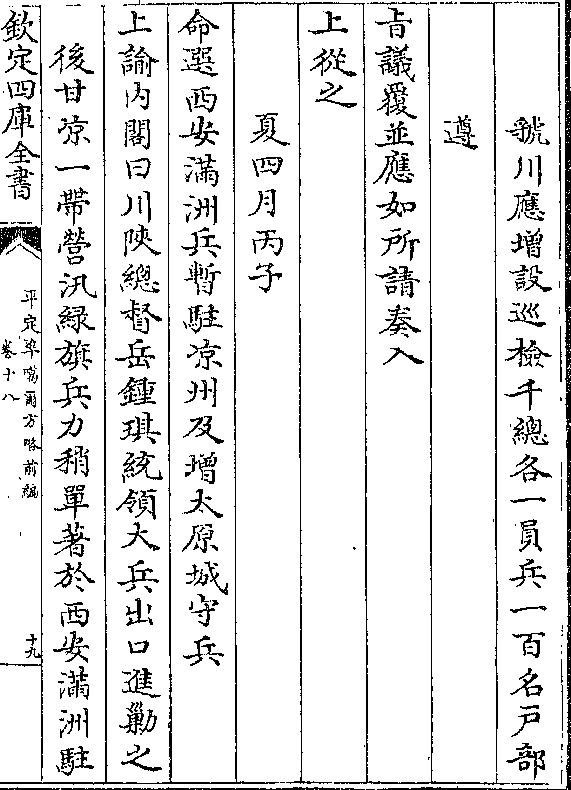 號川應增設巡檢千總各一員兵一百名戸部
遵
旨議覆並應如所請奏入
上從之
夏四月丙子
命選西安滿洲兵暫駐凉州及增太原城守兵
上諭内閣曰川陝總督岳鍾琪統領大兵出口進勦之
後甘凉一帶營汛綠旗兵力稍單著於西安滿洲駐
欽定四庫全書
平定準噶爾方略前編
卷十八
十九